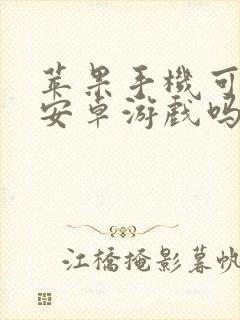 苹果手機可
安卓游戲吗
江橋掩影暮帆